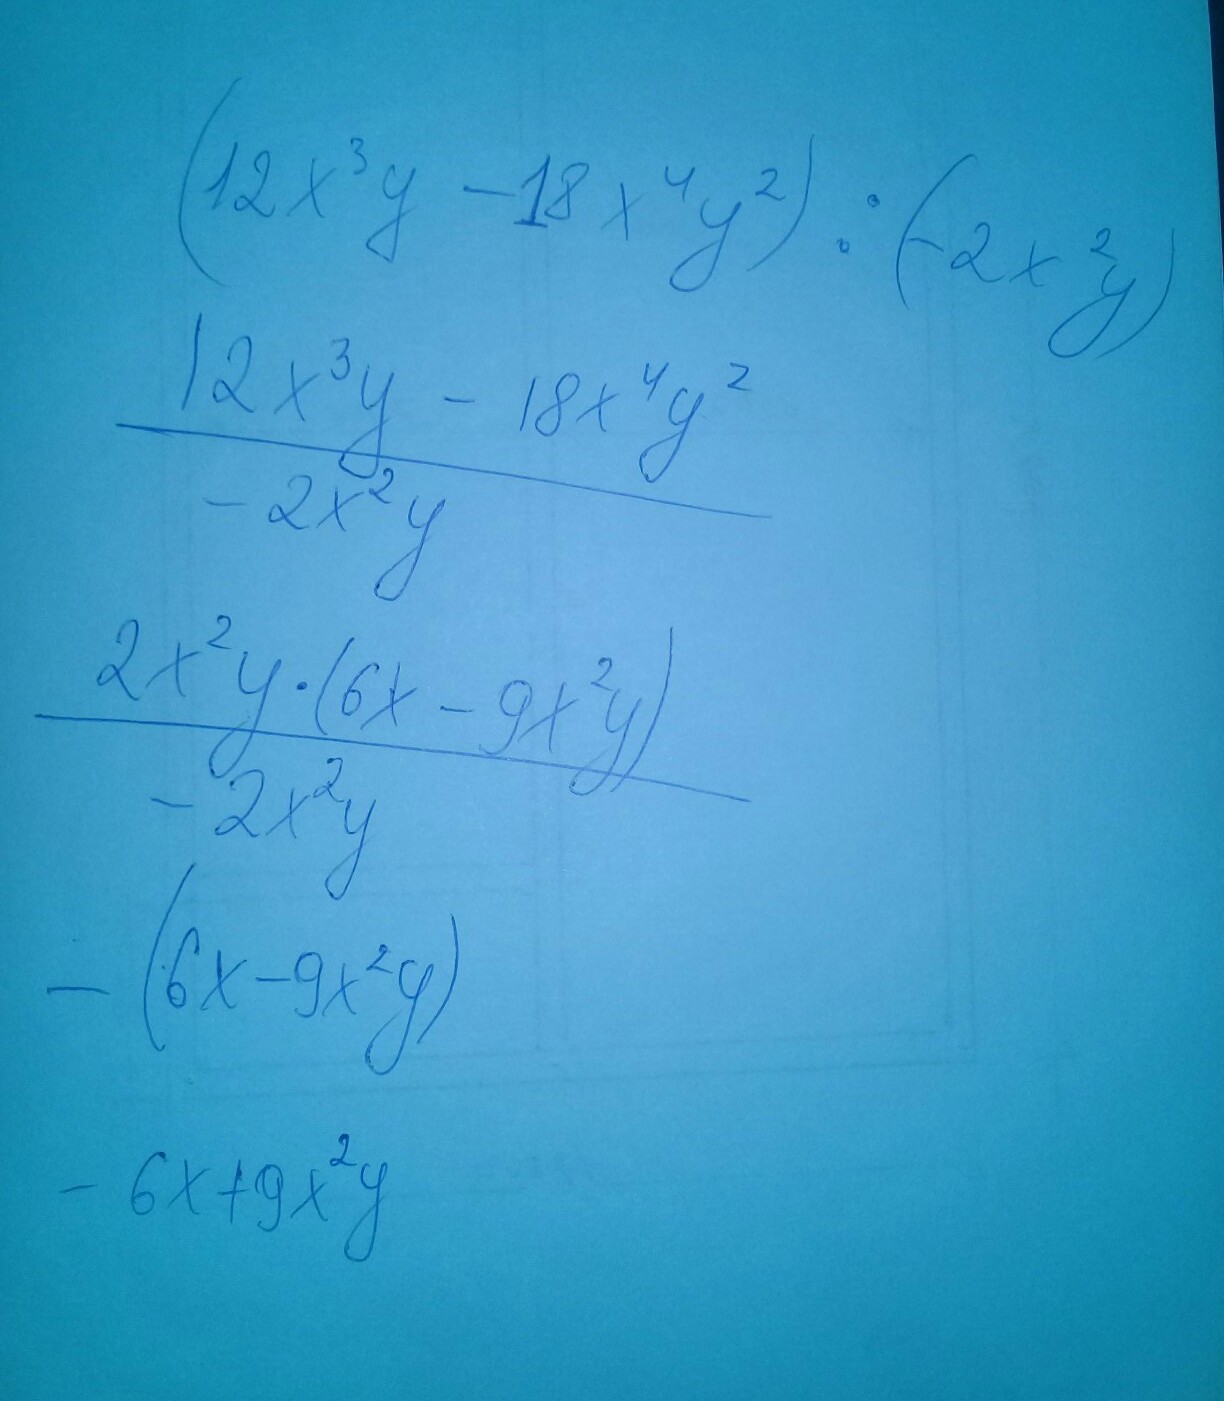 (12x³y - 18x⁴y²) : (-2x²y)
12x³y - 18x⁴y²
- 2x²y
2x²y · (6x - 9x²y)
- 2x²y
- (6x - 9x²y)
- 6x + 9x²y